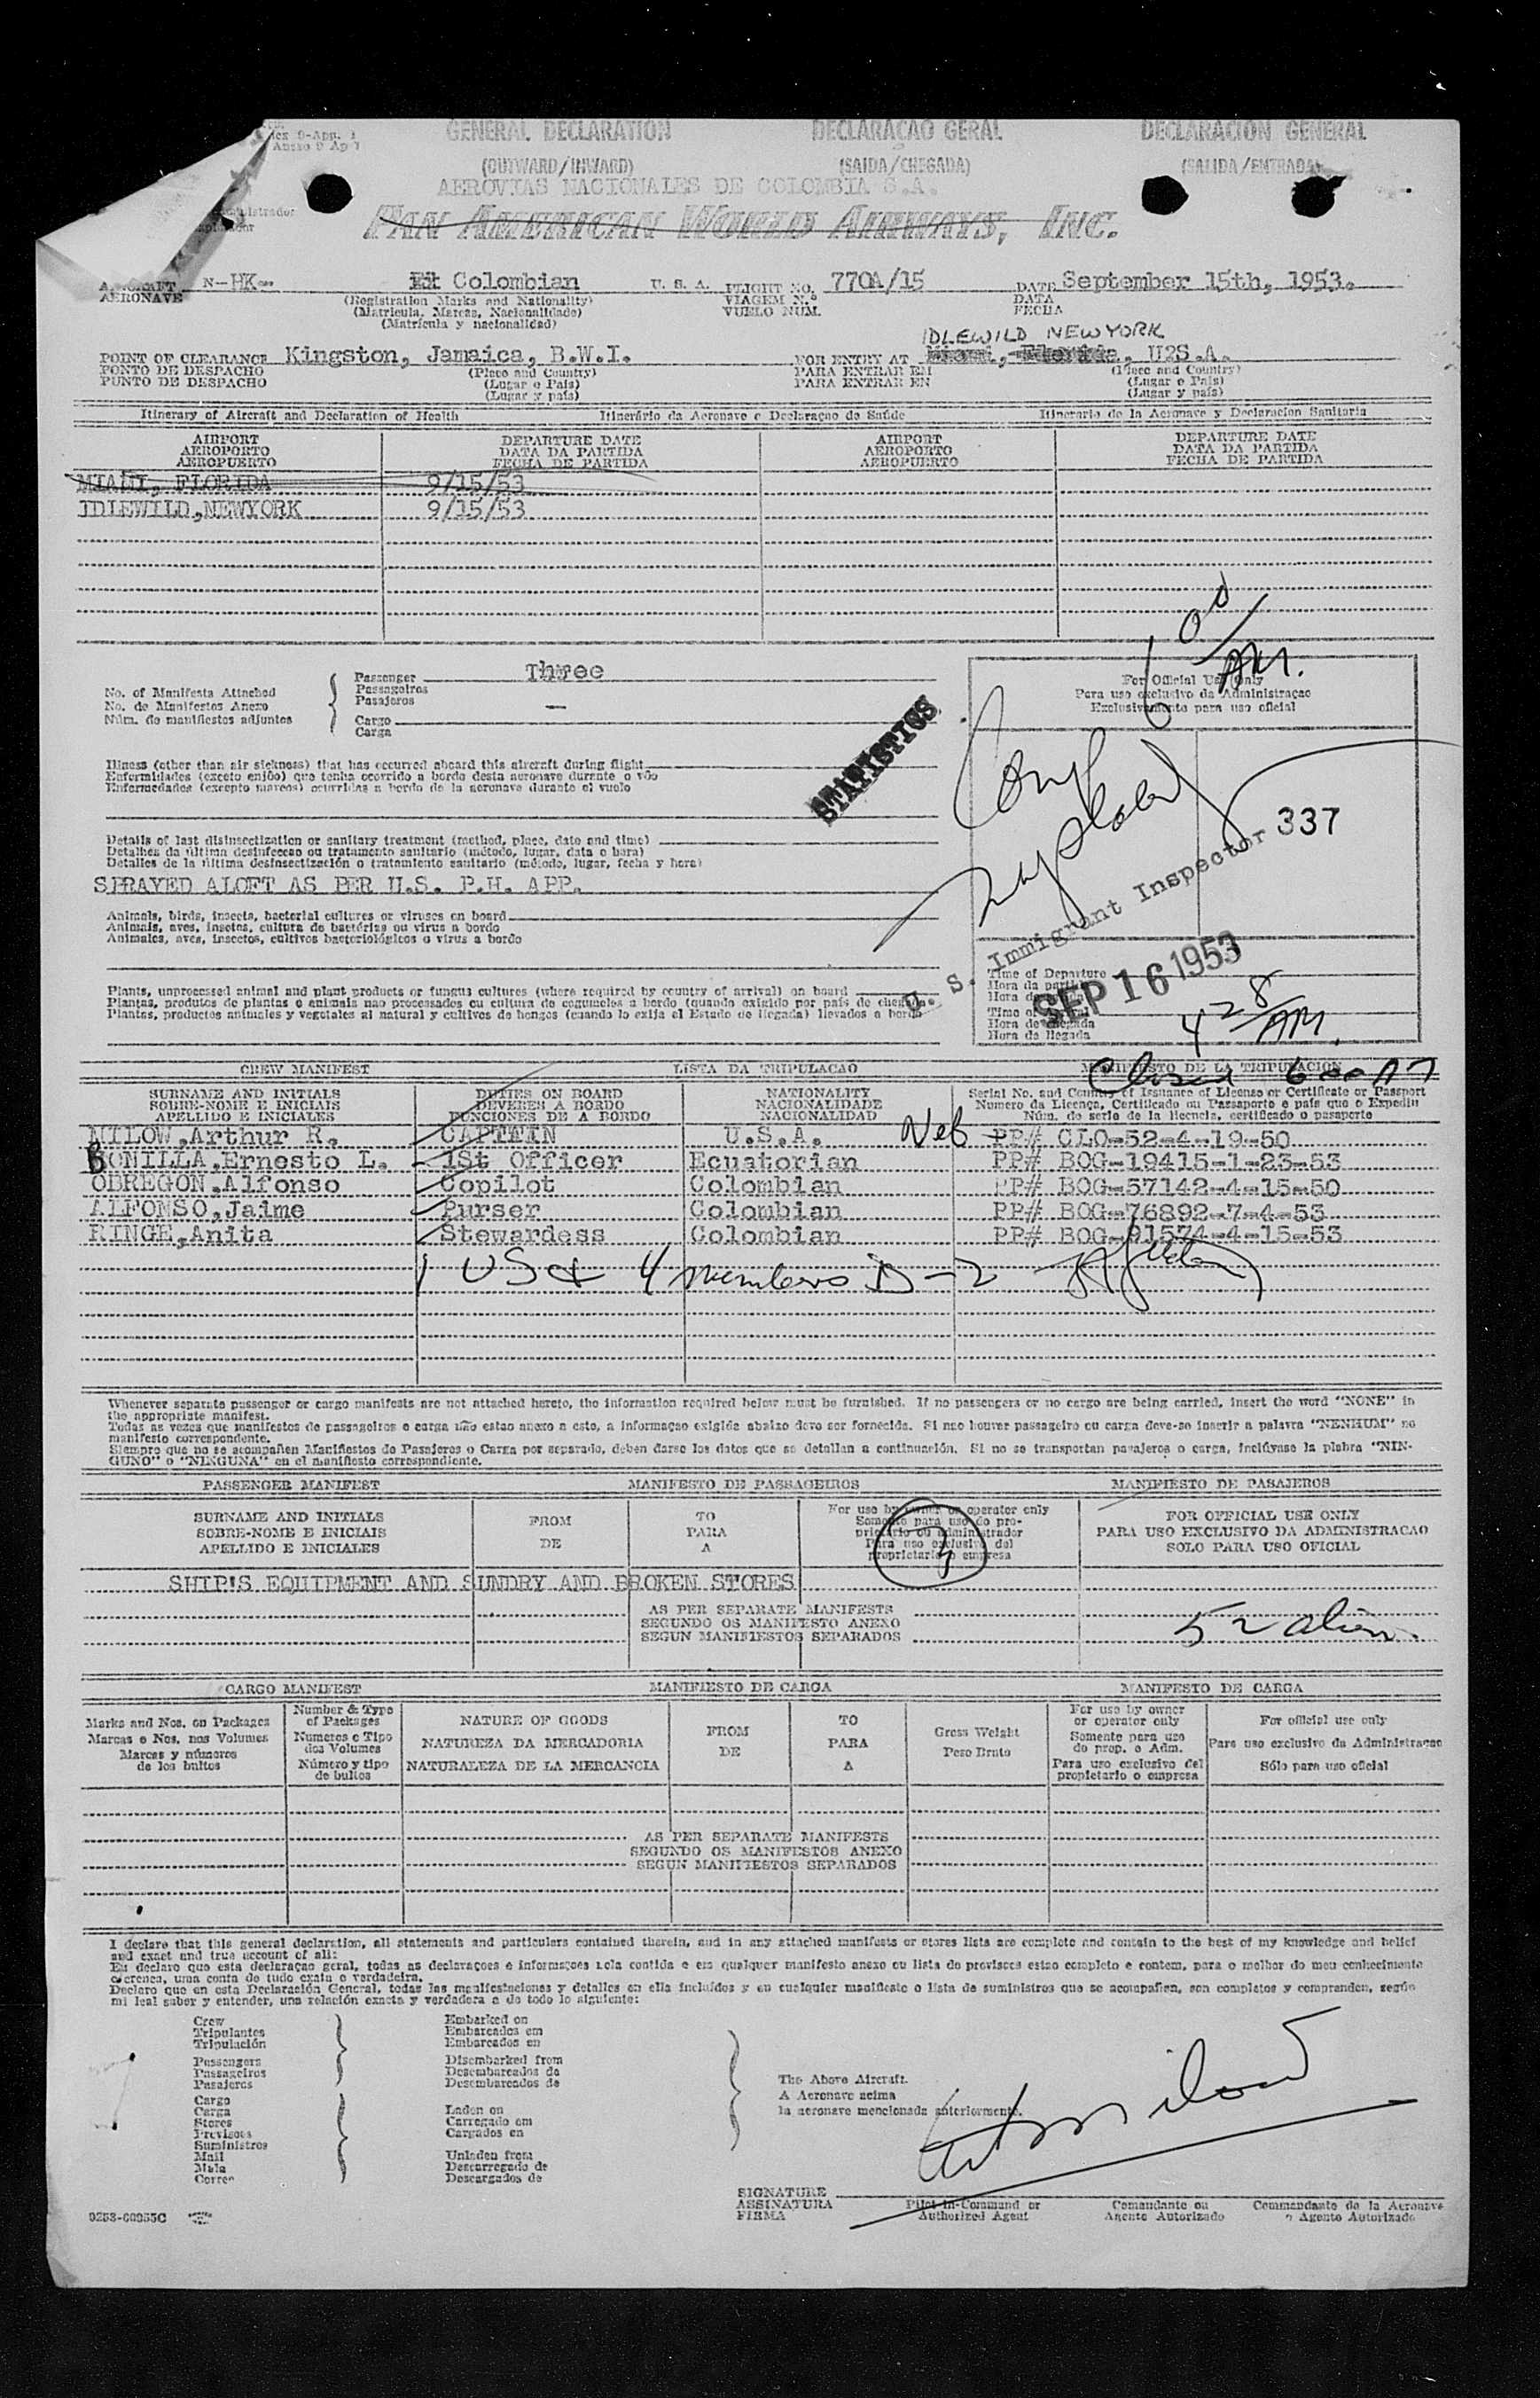 GENERAL DECLARATION DECLARAÇAO GERAL DECLARACION GENERAL
(OUTWARD/INWARD) (SAIDA/CHEGADA) (SALIDA/ENTRADA)
AEROVIAS NACIONALES DE COLOMBIA S.A.
PAN AMERICAN WORLD AIRWAYS, INC.
N-HK- Colombian U. S. A. FLIGHT NO. 770A/15 DATE September 15th, 1953.
AERONAVE (Registration Marks and Nationality) VIAGEM N.° DATA
(Matricula, Marcas, Nacionalidade) VUELO NUM. FECHA
(Matrícula y nacionalidad)
IDLEWILD NEWYORK
POINT OF CLEARANCE Kingston, Jamaica, B.W.I. FOR ENTRY AT Miami, Florida, U2S.A.
PONTO DE DESPACHO (Place and Country) PARA ENTRAR EM (Place and Country)
PUNTO DE DESPACHO (Lugar e País) PARA ENTRAR EN (Lugar e País)
(Lugar y país) (Lugar y país)
Itinerary of Aircraft and Declaration of Health Itinerário da Aeronave e Declaraçao de Saúde Itinerario de la Aeronave y Declaracion Sanitaria
AIRPORT DEPARTURE DATE AIRPORT DEPARTURE DATE
AEROPORTO DATA DA PARTIDA AEROPORTO DATA DA PARTIDA
AEROPUERTO FECHA DE PARTIDA AEROPUERTO FECHA DE PARTIDA
MIAMI, FLORIDA 9/15/53
IDLEWILD,NEWYORK 9/15/53
6 00/AM.
No. of Manifests Attached Passenger Three
No. de Manifestos Anexo Passageiros
Núm. de manifiestos adjuntos Pasajeros
Cargo —
Carga
For Official Use Only
Para uso exclusivo da Administraçao
Exclusivamente para uso oficial
STATISTICS
Illness (other than air sickness) that has occurred aboard this aircraft during flight
Enfermidades (exceto enjôo) que tenha ocorrido a bordo desta aeronave durante o vôo
Enfermedades (excepto mareos) ocurridas a bordo de la aeronave durante el vuelo
Details of last disinsectization or sanitary treatment (method, place, date and time)
Detalhes da última desinfeccao ou tratamento sanitario (método, lugar, data e hora)
Detalles de la última desinsectización o tratamiento sanitario (método, lugar, fecha y hora)
SPRAYED ALOFT AS PER U.S. P.H. APP.
U. S. Immigrant Inspector 337
Animals, birds, insects, bacterial cultures or viruses on board
Animais, aves, insetos, cultura de bactérias ou virus a bordo
Animales, aves, insectos, cultivos bacteriológicos o virus a bordo
Plants, unprocessed animal and plant products or fungus cultures (where required by country of arrival) on board
Plantas, produtos de plantas e animais nao processados ou cultura de cogumelos a bordo (quando exigido por país de chegada
Plantas, productos animales y vegetales al natural y cultivos de hongos (cuando lo exija el Estado de llegada) llevados a bordo
Time of Departure
SEP 16 1953
Hora de chegada
Hora de llegada
4 28/AM.
Closed
CREW MANIFEST LISTA DA TRIPULACAO MANIFIESTO DE LA TRIPULACION
SURNAME AND INITIALS DUTIES ON BOARD NATIONALITY Serial No. and Country of Issuance of License or Certificate or Passport
SOBRE-NOME E INICIAIS DEVERES A BORDO NACIONALIDADE Numero da Licença, Certificado ou Passaporto e país que o Expediu
APELLIDO E INICIALES FUNCIONES DE A BORDO NACIONALIDAD Núm. de serie de la licencia, certificado o pasaporte
MILOW,Arthur R. CAPTTIN U.S.A. Neb PP# CLO-52-4-19-50
BONILLA,Ernesto L. 1St Officer Ecuatorian PP# BOG-19415-1-23-53
OBREGON,Alfonso Copilot Colombian PP# BOG-57142-4-15-50
ALFONSO,Jaime Purser Colombian PP# BOG-76892-7-4-53
RINGE,Anita Stewardess Colombian PP# BOG-91574-4-15-53
1 US & 4 members D-2
Whenever separate passenger or cargo manifests are not attached hereto, the information required below must be furnished. If no passengers or no cargo are being carried, insert the word "NONE" in
the appropriate manifest.
Todas as vezes que manifestos de passageiros e carga não estao anexo a esto, a informaçao exigida abaixo deve ser fornecida. Si nao houver passageiro ou carga deve-se inserir a palavra "NENHUM" no
manifesto correspondente.
Siempre que no se acompañen Manifiestos de Pasajeros o Carga por separado, deben darse los datos que se detallan a continuación. Si no se transportan pasajeros o carga, inclúyase la plabra "NIN-
GUNO" o "NINGUNA" en el manifiesto correspondiente.
PASSENGER MANIFEST MANIFESTO DE PASSAGEIROS MANIFIESTO DE PASAJEROS
SURNAME AND INITIALS FROM TO For use by owner or operator only FOR OFFICIAL USE ONLY
SOBRE-NOME E INICIAIS DE PARA Somente para uso do pro- PARA USO EXCLUSIVO DA ADMINISTRACAO
APELLIDO E INICIALES A prietario ou administrador SOLO PARA USO OFICIAL
Para uso exclusivo del
proprietario o empresa
3
SHIP'S EQUIPMENT AND SUNDRY AND BROKEN STORES
AS PER SEPARATE MANIFESTS
SEGUNDO OS MANIFESTO ANEXO 52 alien
SEGUN MANIFIESTOS SEPARADOS
CARGO MANIFEST MANIFIESTO DE CARGA MANIFESTO DE CARGA
Marks and Nos. on Packages Number & Type of Packages NATURE OF GOODS FROM TO Gross Weight For use by owner or operator only For official use only
Marcas e Nos. nos Volumes Numeros e Tipo dos Volumes NATUREZA DA MERCADORIA DE PARA Peso Bruto Somente para uso do prop. e Adm. Para uso exclusivo da Administraçao
Marcas y números de los bultos Número y tipo de bultos NATURALEZA DE LA MERCANCIA A Para uso exclusivo del propietario o empresa Sólo para uso oficial
AS PER SEPARATE MANIFESTS
SEGUNDO OS MANIFESTOS ANEXO
SEGUN MANIFIESTOS SEPARADOS
I declare that this general declaration, all statements and particulars contained therein, and in any attached manifests or stores lists are complete and contain to the best of my knowledge and belief
and exact and true account of all:
Eu declaro que esta declaraçao geral, todas as declaraçoes e informaçoes nela contida e em qualquer manifesto anexo ou lista de provisoes estao completo e contem, para o melhor do meu conhecimento
e crenca, uma conta de tudo exata e verdadeira.
Declaro que en esta Declaración General, todas las manifestaciones y detalles en ella incluídos y en cualquier manifiesto o lista de suministros que se acompañan, son completos y comprenden, según
mi leal saber y entender, una relación exacta y verdadera a de todo lo siguiente:
Crew Embarked on
Tripulantes Embarcados em
Tripulación Embarcados en
Passengers Disembarked from
Passageiros Desembarcados de
Pasajeros Desembarcados de
The Above Aircraft.
A Aeronave acima
la aeronave mencionada anteriormente.
Cargo
Carga Laden on
Stores Carregado em
Provisoes Cargados en
Suministros
Mail Unladen from
Mala Descarregado de
Correo Descargados de
SIGNATURE
ASSINATURA Pilot-in-Command or Comandante ou Commandante de la Aeronave
FIRMA Authorized Agent Agente Autorizado o Agente Autorizado